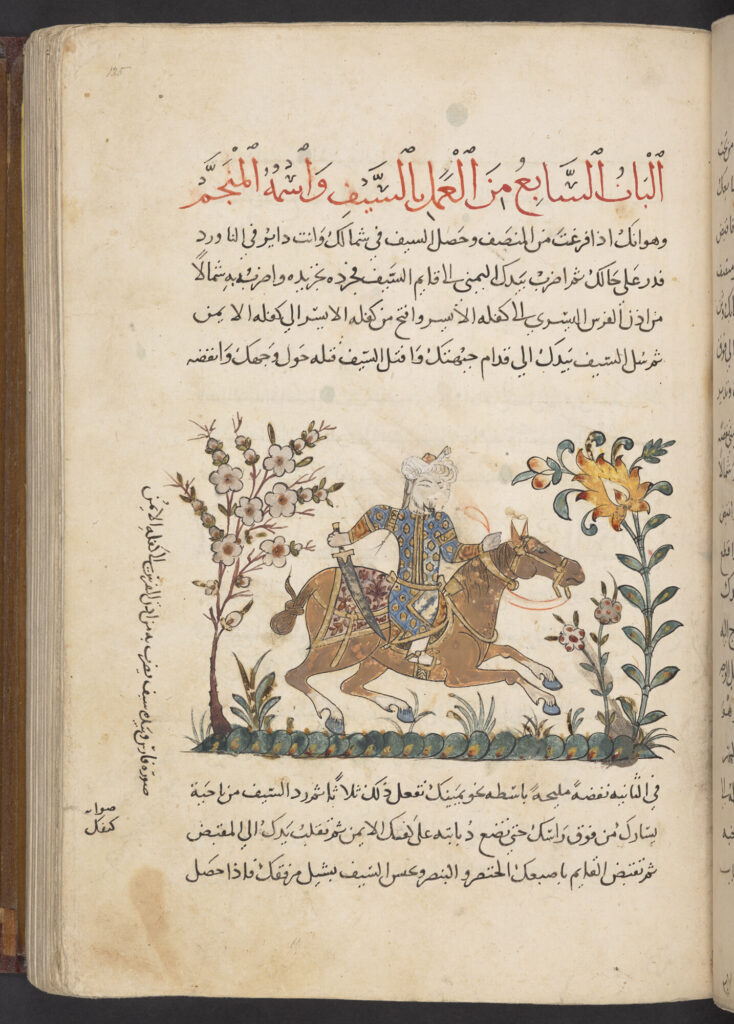 125
الباب السابع من العمل بالسيف واسمه المنجم
وهو انك اذا فرغت من المنصف وحصل السيف في شمالك وانت داير في الناورد
فدر على حالك ثم اضرب بيدك اليمنى الا قايم السيف فجرده تجريده واضرب به شمالا
من اذن الفرس اليسرى الا كفله الايسر وافتح من كفله الايسر الى كفله الايمن
ثم سل السيف بيدك الى قدام جبهتك وافتل السيف فتله حول وجهك وانفضه
صورة فارس وبيده سيف يضرب به من اذن الفرس الا كفله الايمن
في الثانيه نفضة مليحة باسطه نحو يمينك تفعل ذلك ثلاثا ثم رد السيف من ناحية
صوابه
كتفك
يسارك من فوق راسك حتى تضع دبابته على كفتك الايمن ثم تقلب يدك الى المقبض
ثم تقبض القايم باصبعك الخنصر والبنصر وعس السيف بشيل مرفقك فاذا حصل